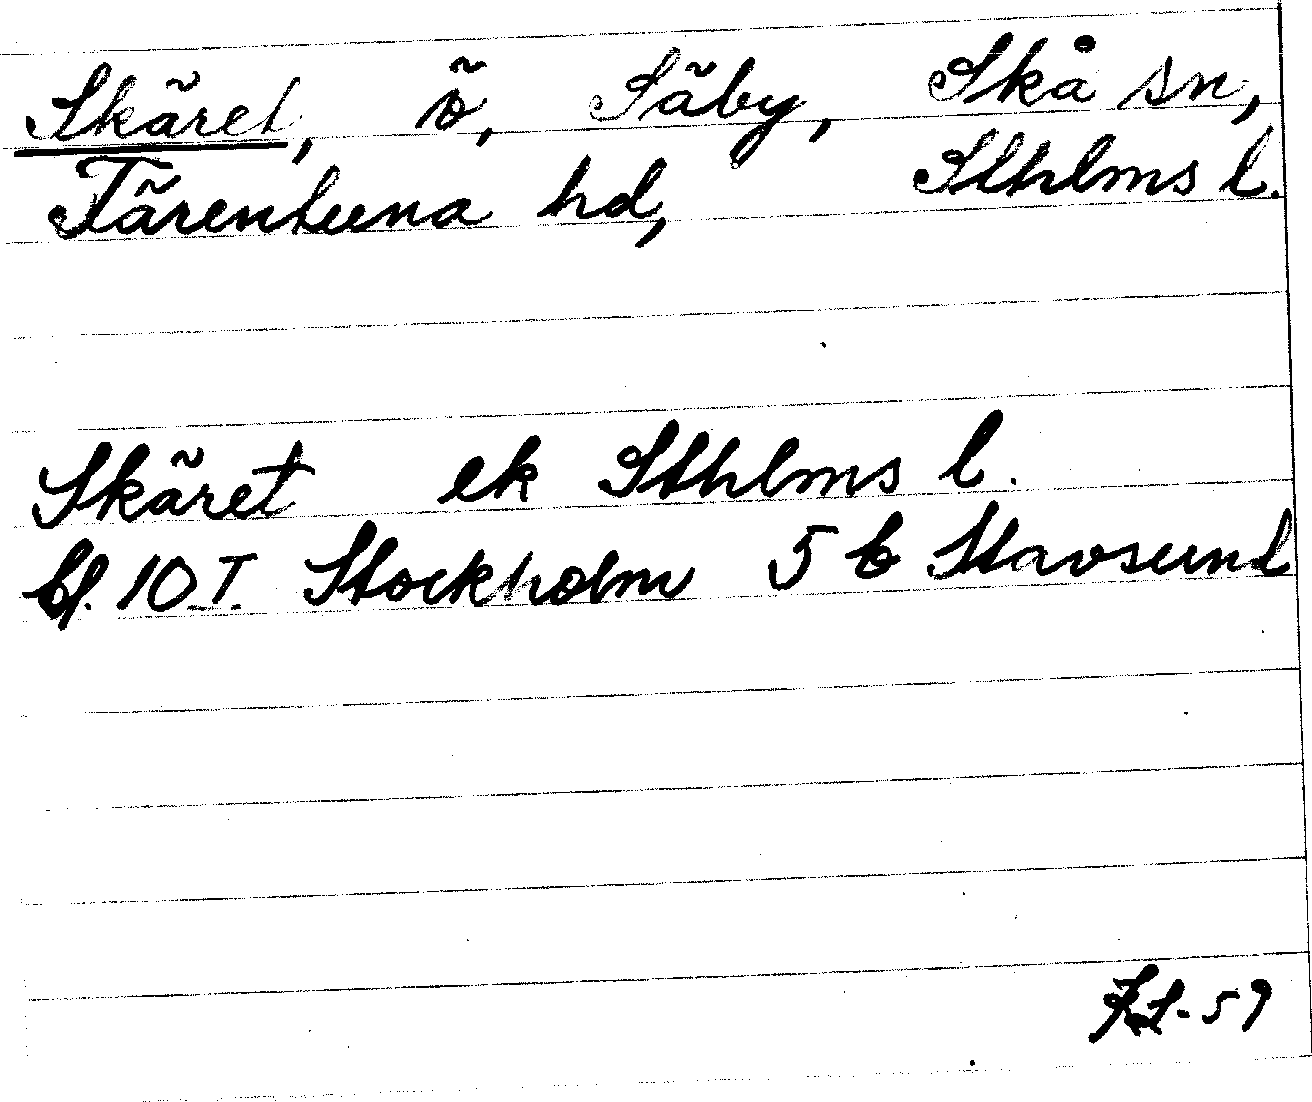 Skäret, ö, Säby, Skå sn,
Färentuna hd, Sthlms l.
Skäret ek Sthlms l.
bl. 10 I. Stockholm 5 b Stavsund
-59